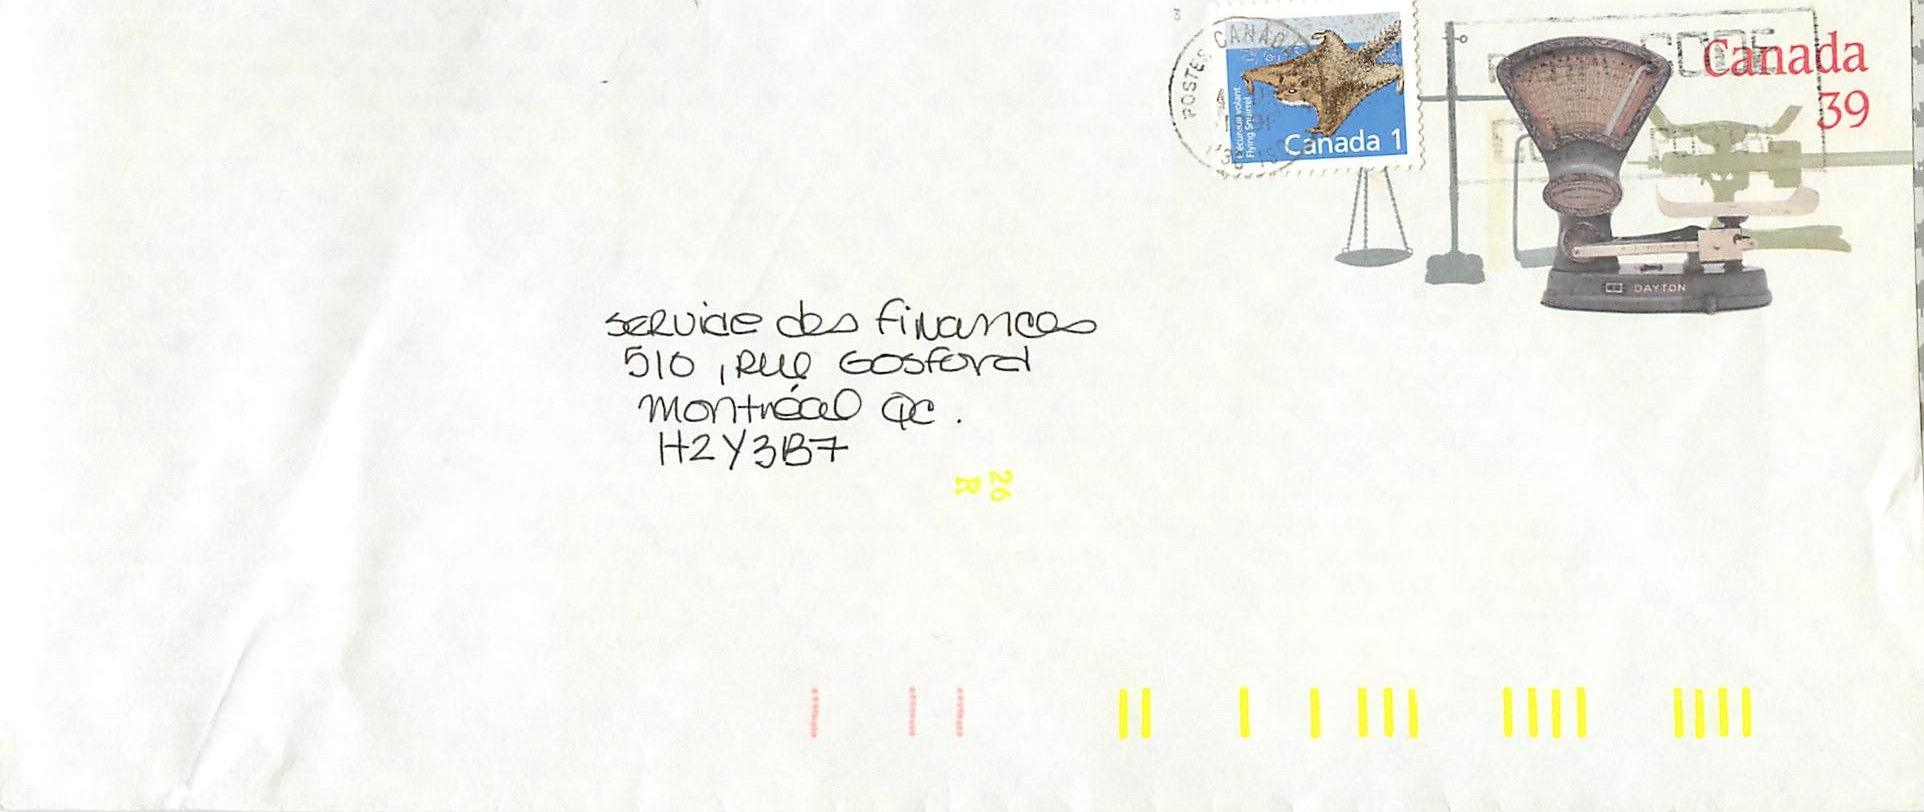 POSTES CANADA
Écureuil volant
Flying Squirrel
Canada 1
CODE
Canada
39
DAYTON
Service des finances
510, Rue Gosford
Montréal QC.
H2Y3B7
26
R